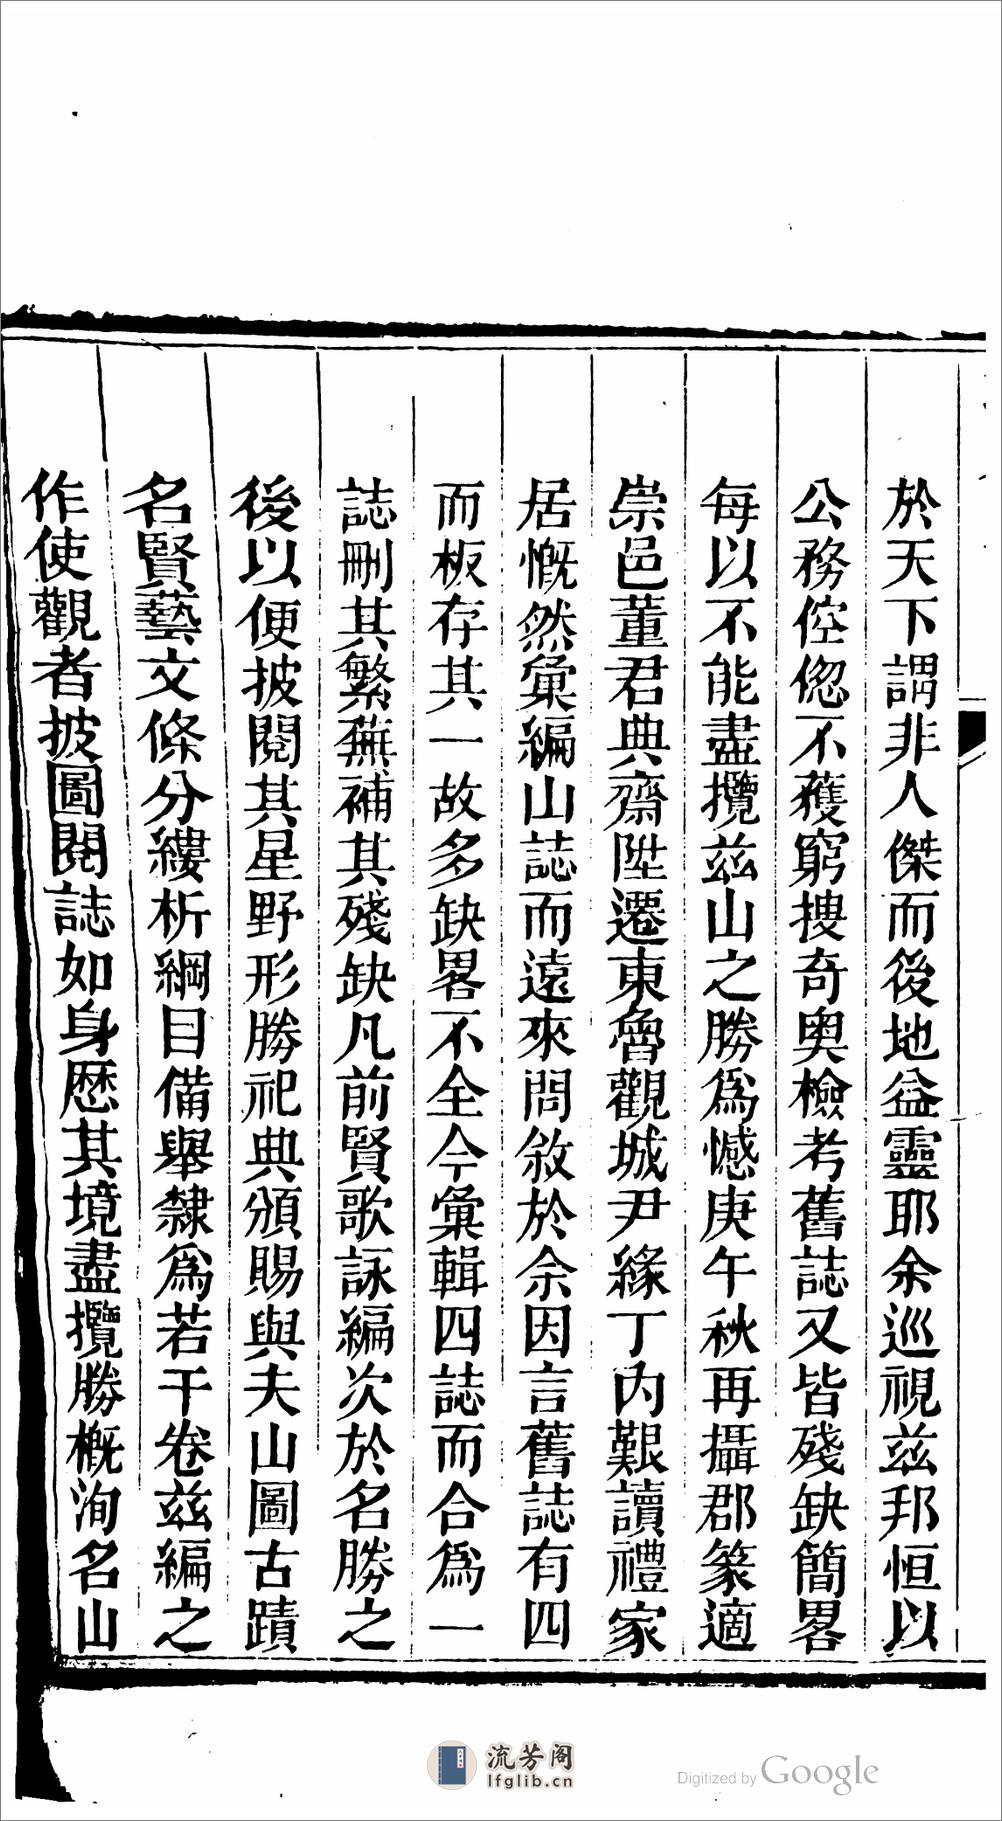 於天下謂非人傑而後地益靈耶余巡視茲邦恒以
公務倥偬不獲窮搜奇奧檢考舊誌又皆殘缺簡畧
每以不能盡攬茲山之勝爲憾庚午秋再攝郡篆適
崇邑董君典齋陞遷東魯觀城尹緣丁内艱讀禮家
居慨然彙編山誌而遠來問敘於余因言舊誌有四
而板存其一故多缺畧不全今彙輯四誌而合爲一
誌刪其繁蕪補其殘缺凡前賢歌詠編次於名勝之
後以便披閱其星野形勝祀典頒賜與夫山圖古蹟
名賢藝文條分縷析綱目備舉隸爲若干卷茲編之
作使觀者披圖閱誌如身歷其境盡攬勝概洵名山
流芳阁
lfglib.cn
Digitized by Google